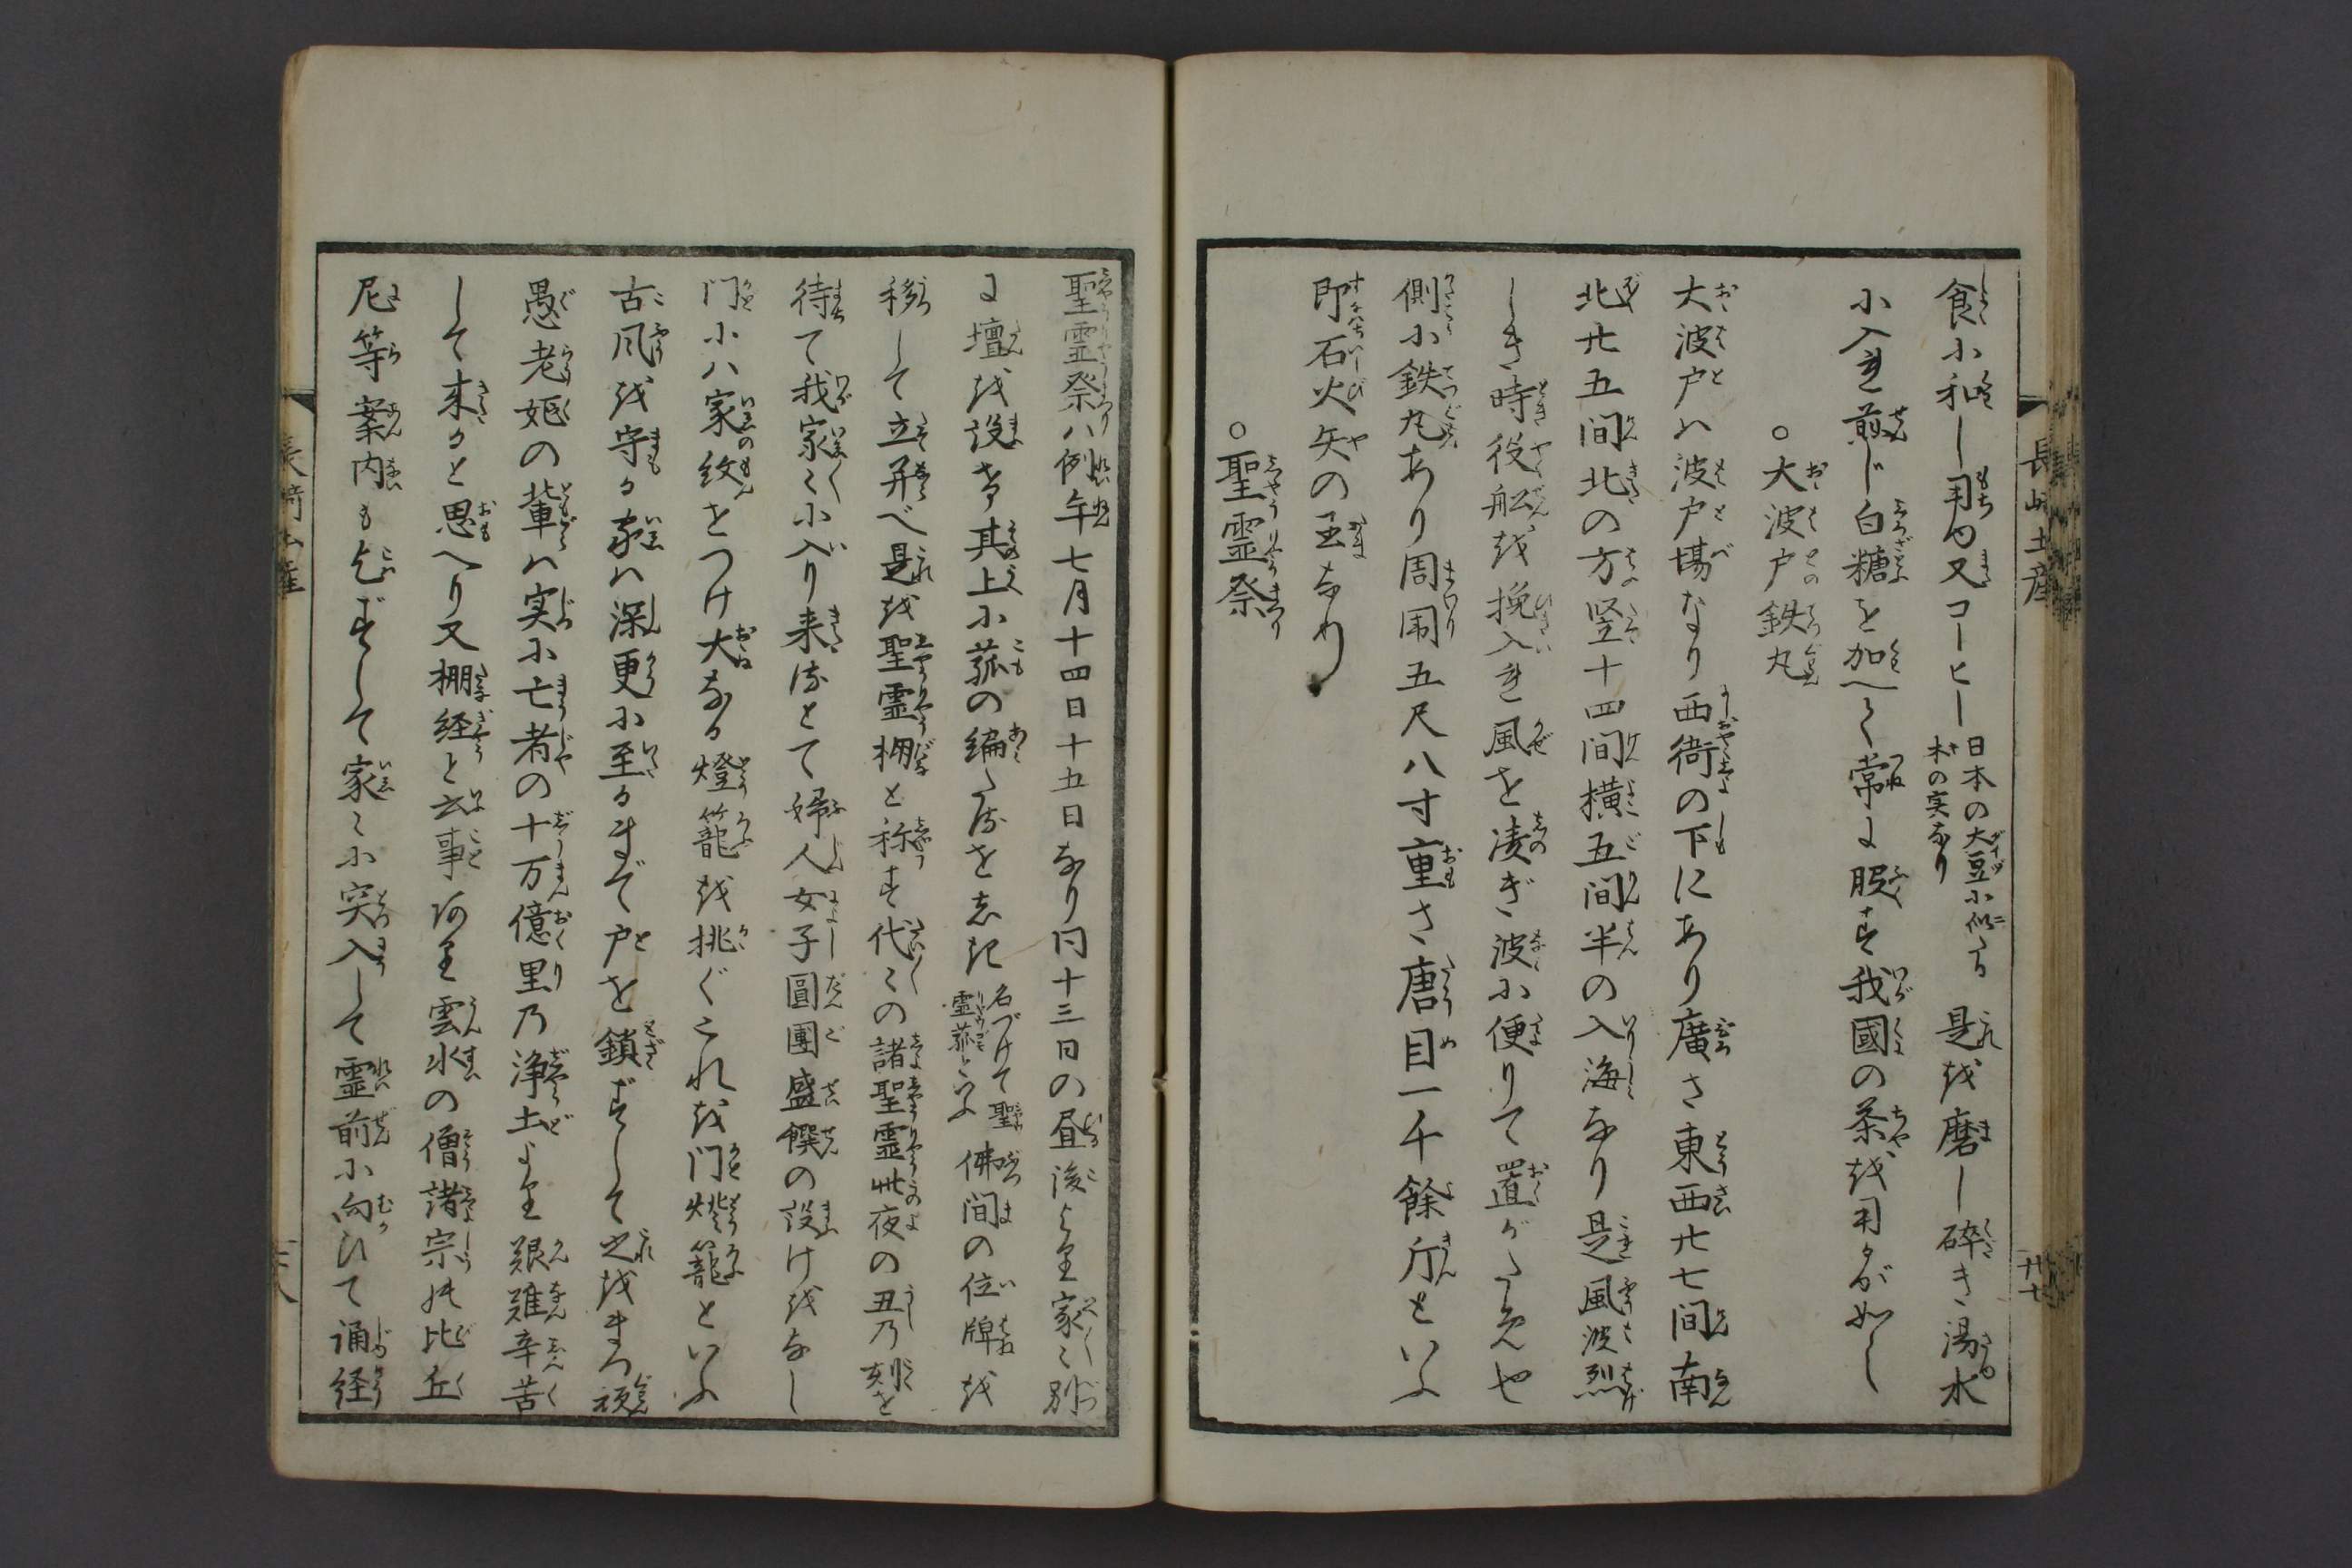 食に和し用ゆ又コーヒー 日本の大豆に似たる木の実なり 是を磨し砕き湯水
に入れ煎じ白糖を加へて常に服す我國の茶を用るが如し
○大波戸鉄丸
大波戸は波戸場なり西衙の下にあり廣さ東西廿七間南
北廿五間北の方竪十四間横五間半の入海なり是風波烈
しき時役舩を挽入れ風を凌ぎ波に便りて置がため也
側に鉄丸あり周囲五尺八寸重さ唐目一千餘斤といふ
即石火矢の玉なり
○聖霊祭
聖霊祭ハ例年七月十四日十五日なり同十三日の昼後より家々別
に壇を設け其上に菰の編たるをしき 名づけて聖霊菰といふ 佛間の位牌を
移して立并べ是を聖霊棚と称す代々の諸聖霊此夜の丑の刻を
待て我家々に入り来るとて婦人女子圓團盛饌の設けをなし
門にハ家紋をつけ大なる燈籠を挑ぐこれを門燈籠といふ
古風を守る家は深更に至るまで戸を鎖ずして之をまつ頑
愚老婗の輩は実に亡者の十万億里の浄土より艱難辛苦
して来ると思へり又棚経と云事あり雲水の僧諸宗の比丘
尼等案内も乞ずして家々に突入して霊前に向ひて誦経
長崎土産